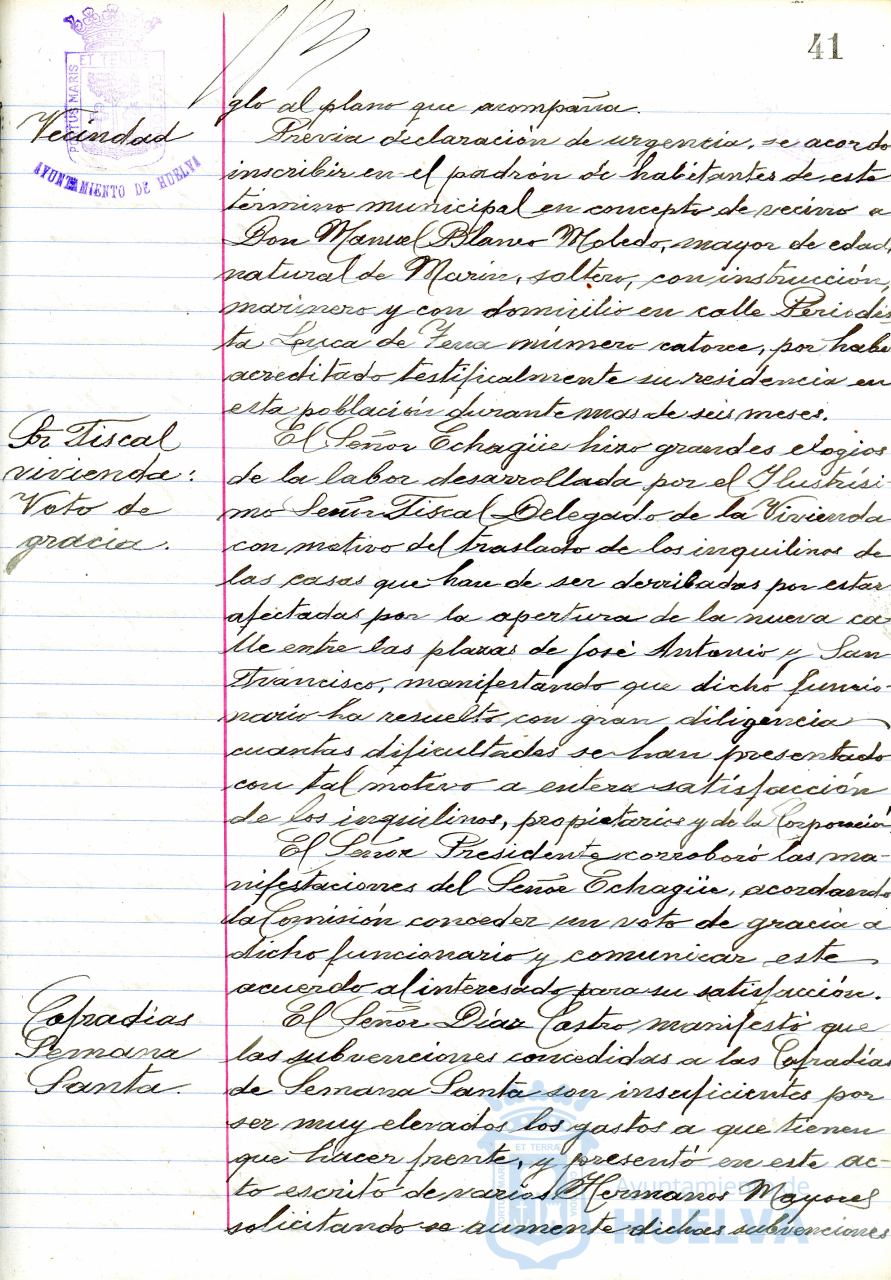 41
PORTUS MARIS ET TERRAE CUSTODIA
AYUNTAMIENTO DE HUELVA
glo al plano que acompaña.
Vecindad
Previa declaración de urgencia, se acordó
inscribir en el padrón de habitantes de este
término municipal en concepto de vecino a
Don Manuel Blanco Moledo, mayor de edad,
natural de Marín, soltero, con instrucción,
marinero y con domicilio en calle Periodis
ta Luca de Tena número catorce, por haber
acreditado testificalmente su residencia en
esta población durante mas de seis meses.
Sor Fiscal
vivienda:
Voto de
gracia.
El Señor Echagüe hizo grandes elogios
de la labor desarrollada por el Ilustrísi-
mo Señor Fiscal Delegado de la Vivienda
con motivo del traslado de los inquilinos de
las casas que han de ser derribadas por estar
afectadas por la apertura de la nueva ca-
lle entre las plazas de José Antonio y San
Francisco, manifestando que dicho funcio-
nario ha resuelto con gran diligencia
cuantas dificultades se han presentado
con tal motivo a entera satisfacción
de los inquilinos, propietarios y de la Corporación.
El Señor Presidente corroboró las ma-
nifestaciones del Señor Echagüe, acordando
la Comisión conceder un voto de gracia a
dicho funcionario y comunicar este
acuerdo al interesado para su satisfacción.
Cofradias
Semana
Santa.
El Señor Díaz Castro manifestó que
las subvenciones concedidas a las Cofradías
de Semana Santa son insuficientes por
ser muy elevados los gastos a que tienen
que hacer frente, y presentó en este ac-
to escrito de varios Hermanos Mayores
solicitando se aumente dichas subvenciones
Ayuntamiento de
HUELVA